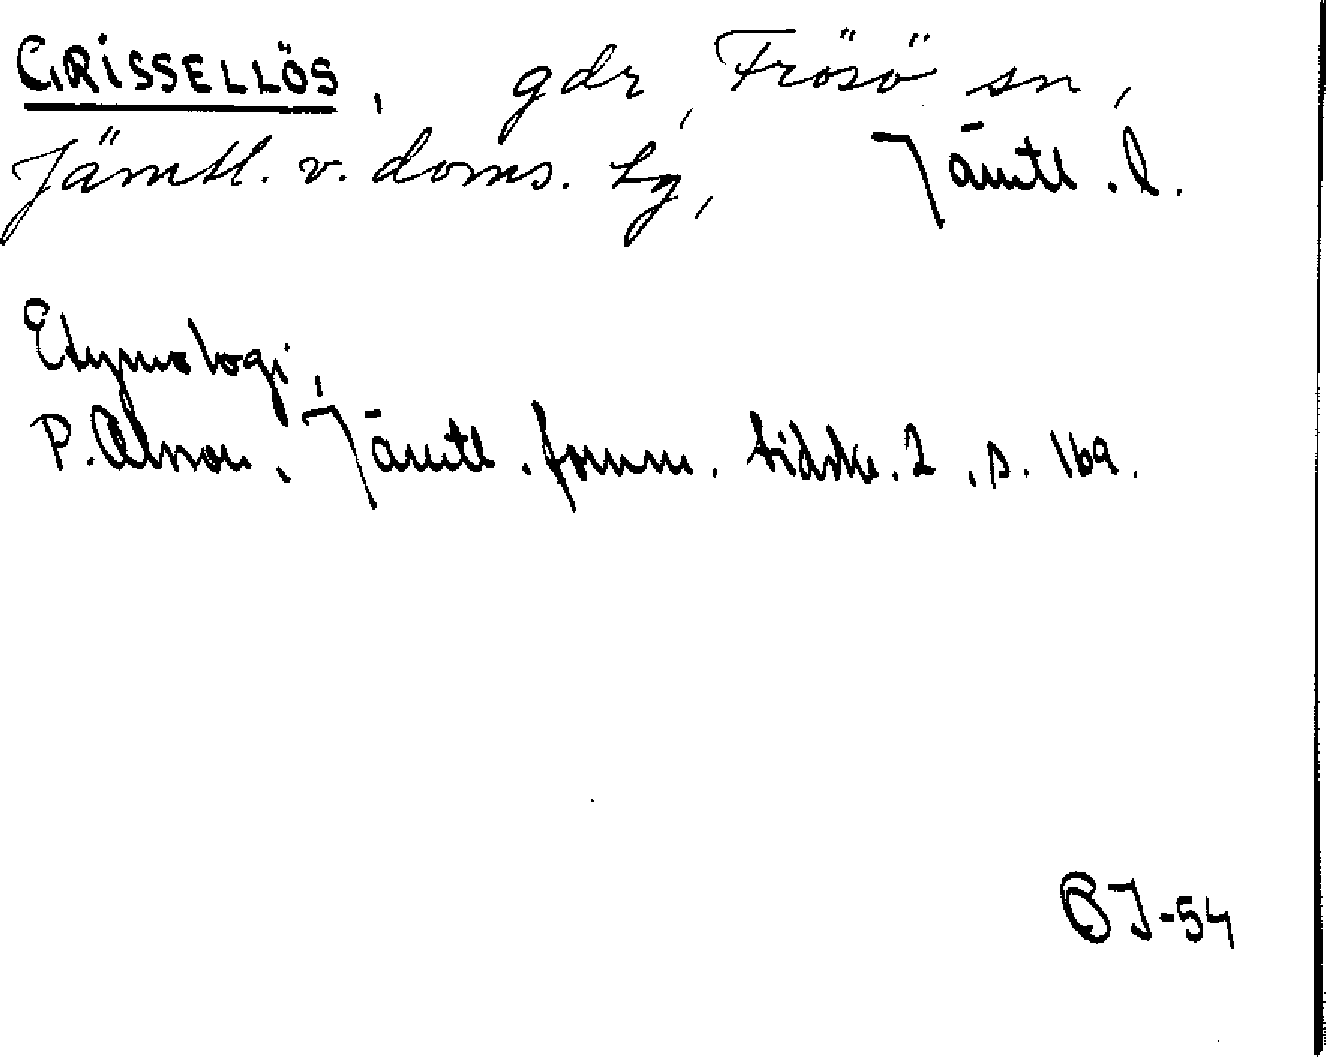 GRISSELLÖS, gdr, Frösö sn,
Jämtl. v. doms. hg, Jämtl. l.
Etymologi,
P. Olsson, Jämtl. fornm. tidskr. 2, s. 169.
BJ-54